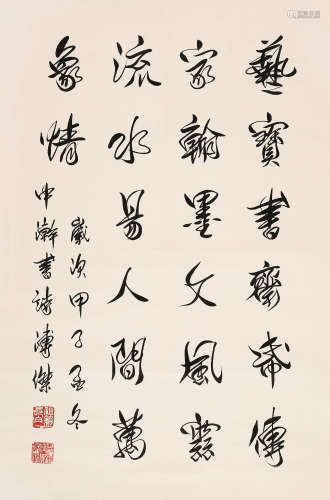 藝寶書齋傳
家翰墨文風
流水易人間萬
象情
歲次甲子孟冬
中澣書溥傑